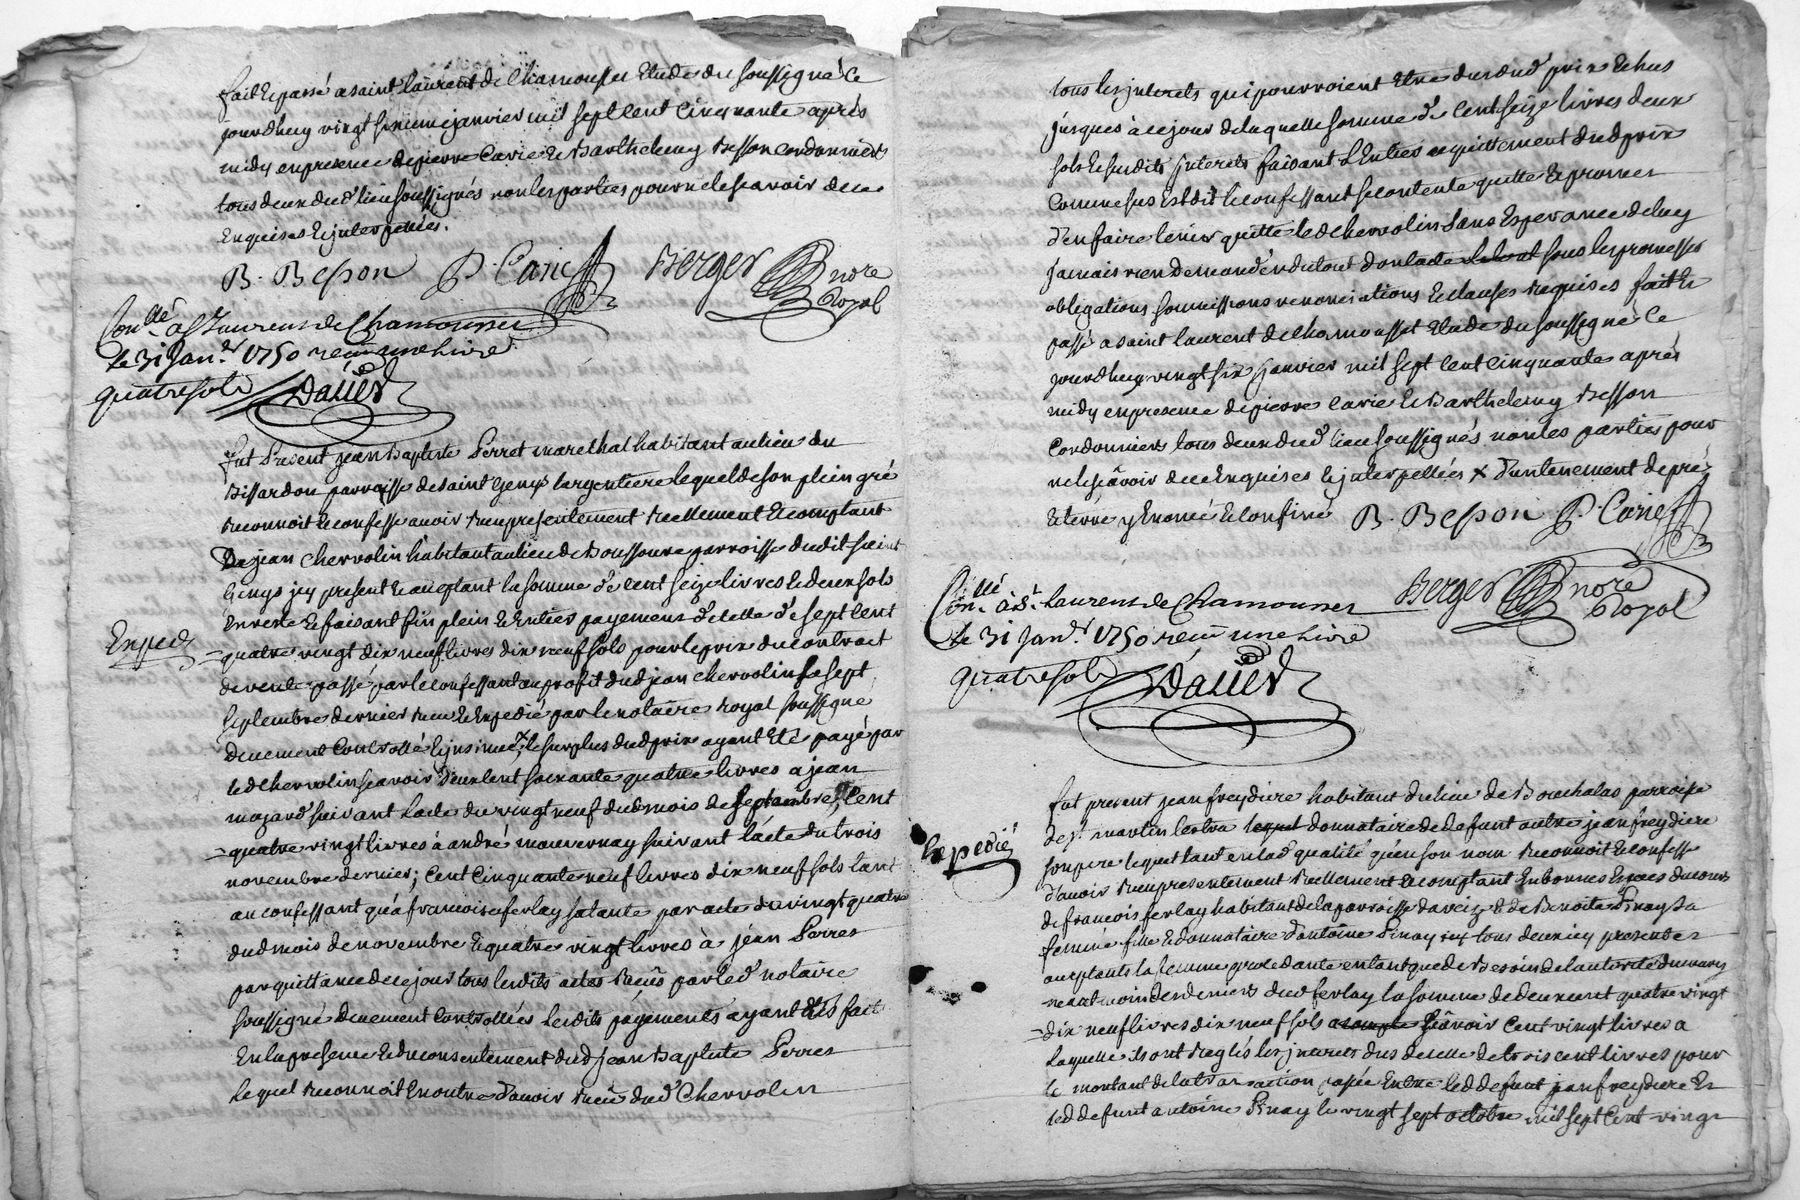 fait et passé a saint laurent de Chamousset Etude du soussigné Ce
jourdhuy vingt sixieme janvier mil sept cent Cinquante après
midy en presence de pierre Carie et Barthelemy Besson cordonniers
tous deux dud' lieu soussignés non les parties pour ne le scavoir de ce
Enquises et interpellées.
B. Besson P. Carie Berger nore
Royal
Con.llé a St Laurens de Chamousset
le 31 Jan.er 1750 reçu une livre
quatre sols Daller
fut Present jean Baptiste Perret marechal habitant au lieu du
Bissardon parroisse de saint Genys largentiere lequel de son plein gré
Reconnoit et confesse avoir Reçu presentement Reellement et comptant
De jean Chervolin habitant au lieu de Boussoure parroisse dudit saint
Genys icy present et acceptant la somme de cent seize livres et deux sols
En reste et faisant fin plein et Entier payement de celle de sept cent
Exped.
= quatre vingt dix neuf livres dix neuf sols pour le prix du contract
de vente passé par le confessant au profit dud jean Chervolin le sept
septembre dernier Reçu et Expedié par le notaire royal soussigné
duement Controllé et insinué x, le surplus dud prix ayant Eté payé par
led Chervolin scavoir deux cent soixante quatre livres a jean
mazard suivant lacte du vingt neuf dud mois de septembre, Cent
= quatre vingt livres à andré mauvernay suivant l'acte du trois
novembre dernier; Cent Cinquante neuf livres dix neuf sols tant
au confessant qu'a francoise ferlay sa tante par acte du vingt quatre
dud mois de novembre et quatre vingt livres à jean Perret
par quittance de ce jour tous lesdits actes Reçus par led' notaire
soussigné duement Controllés lesdits payements ayant Etés faits
En la presence et du consentement dud jean Baptiste Perret
Lequel Reconnoit En outre d'avoir Reçu dud' Chervolin
tous les interets qui pourroient Etre dus dud' prix Echus
jusques à ce jour de laquelle somme de Cent seize livres deux
sols et susdits interets faisant L'Entier acquittement dud prix
Comme sus Est dit le confessant se contente quitte et promet
d'en faire tenir quitte led Chervolin sans Esperance de luy
jamais rien demander du tout dont acte sous les promesses
obligations soumissions renonciations et clauses Requises fait et
passé a saint laurent de Chamousset Etude du soussigné Ce
jourdhuy vingt six janvier mil sept cent cinquante après
midy en presence de pierre Carie et Barthelemy Besson
Cordonniers tous deux dud' lieu soussignés non les parties pour
ne le scâvoir de ce Enquises et interpellées x d'un tenement de pré
et terre y Enoncé et confiné B. Besson P. Carie
Berger nore
Royal
Con.llé à St. Laurens de Chamousset
le 31 Jan.er 1750 reçu une livre
quatre sols Daller
fut present jean freydiere habitant du lieu de Bouchalas parroisse
de st. martin lestra donnataire de defunt autre jean freydiere
Expedié
son pere lequel tant en lad' qualité qu'en son nom Reconnoit et confesse
d'avoir Reçu presentement Reellement et comptant En bonnes Especes du cours
de francois ferlay habitant de la parroisse daveize et de Benoite Pinay sa
femme fille et donnataire d'antoine Pinay tous deux icy presents et
acceptants la femme procedante en tant que de Besoin de lautorité du mary
neantmoins des deniers dud' ferlay la somme de deux cent quatre vingt
= dix neuf livres dix neuf sols scâvoir Cent vingt livres a
Laquelle ils ont Reglés les interets dus de celle de trois cent livres pour
le montant de la transaction passée Entre led defunt jean freydiere Et
led defunt antoine Pinay le vingt sept octobre mil sept Cent vingt